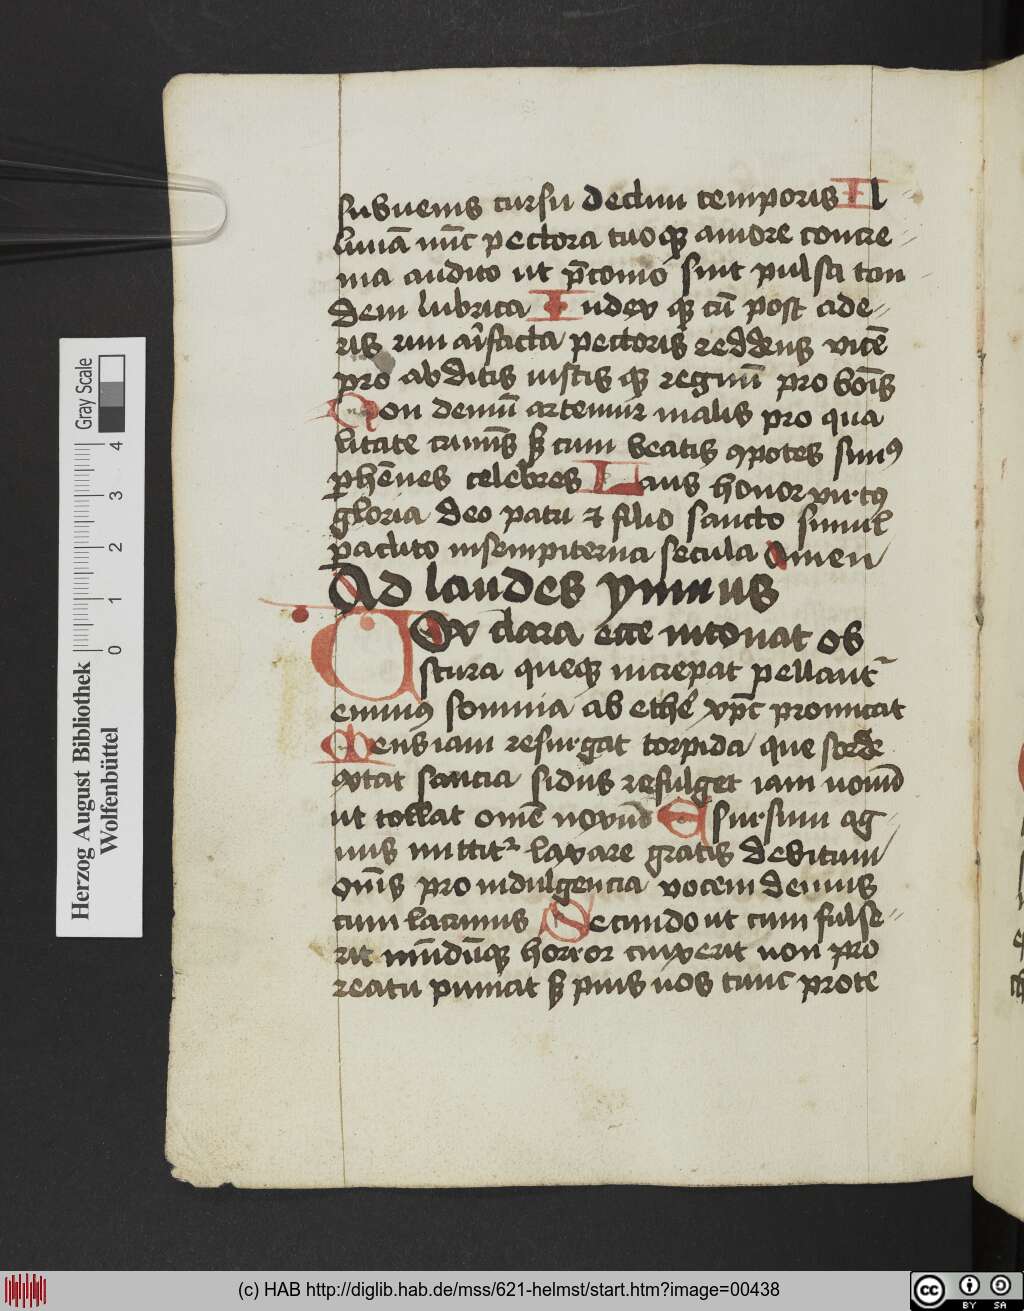 subuenis cursu decliui temporis Il
lumīa nūc pectora tuo qȝ amore concre
ma audito ut p̄conio sint pulsa tan
dem lubrica Iudex qȝ cū post ade
ris rim ar̄i facta pectoris reddens vicē
pro abditis iustis qȝ regnū pro boīs
Non demū artemur malis pro qua
litate crimīs sȝ cum beatis cōpotes simꝰ
ꝑhēnes celebres Laus honor virtꝰ
gloria deo patri et filio sancto simul
paclito in sempiterna secula Amen
Ad laudes ymnus
Vox clara ecce intonat ob
scura queqȝ increpat pellantᷣ
eminꝰ somnia ab ethē xpc̄ promicat
Mens iam resurgat torpida que sorde
extat saucia sidus refulget iam nouū
ut tollat omē noxiū E sursum ag
nus mittitᷣ laxare gratis debitum
om̄s pro indulgencia vocem demus
cum lacrimis Secundo ut cum fulse
rit mūdūqȝ horror cinxerit non pro
reatu puniat sȝ pius nos tunc prote
Herzog August Bibliothek
Wolfenbüttel
0 1 2 3 4
Gray Scale
(c) HAB http://diglib.hab.de/mss/621-helmst/start.htm?image=00438
cc BY SA